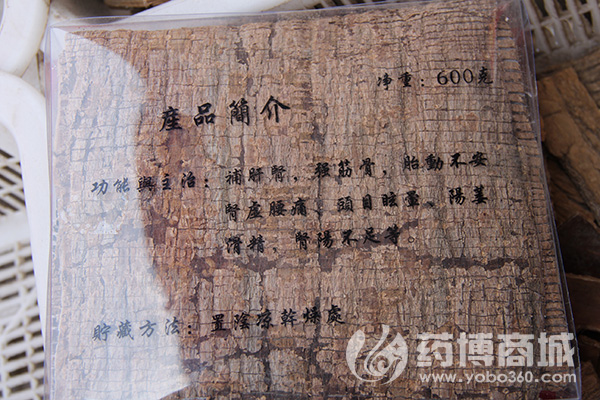 净重：600克
産品簡介
功能與主治：補肝腎，强筋骨，胎動不安
腎虚腰痛、頭目眩暈、陽萎
滑精，腎陽不足等。
貯藏方法：置陰凉幹燥處
药博商城
www.yobo360.com